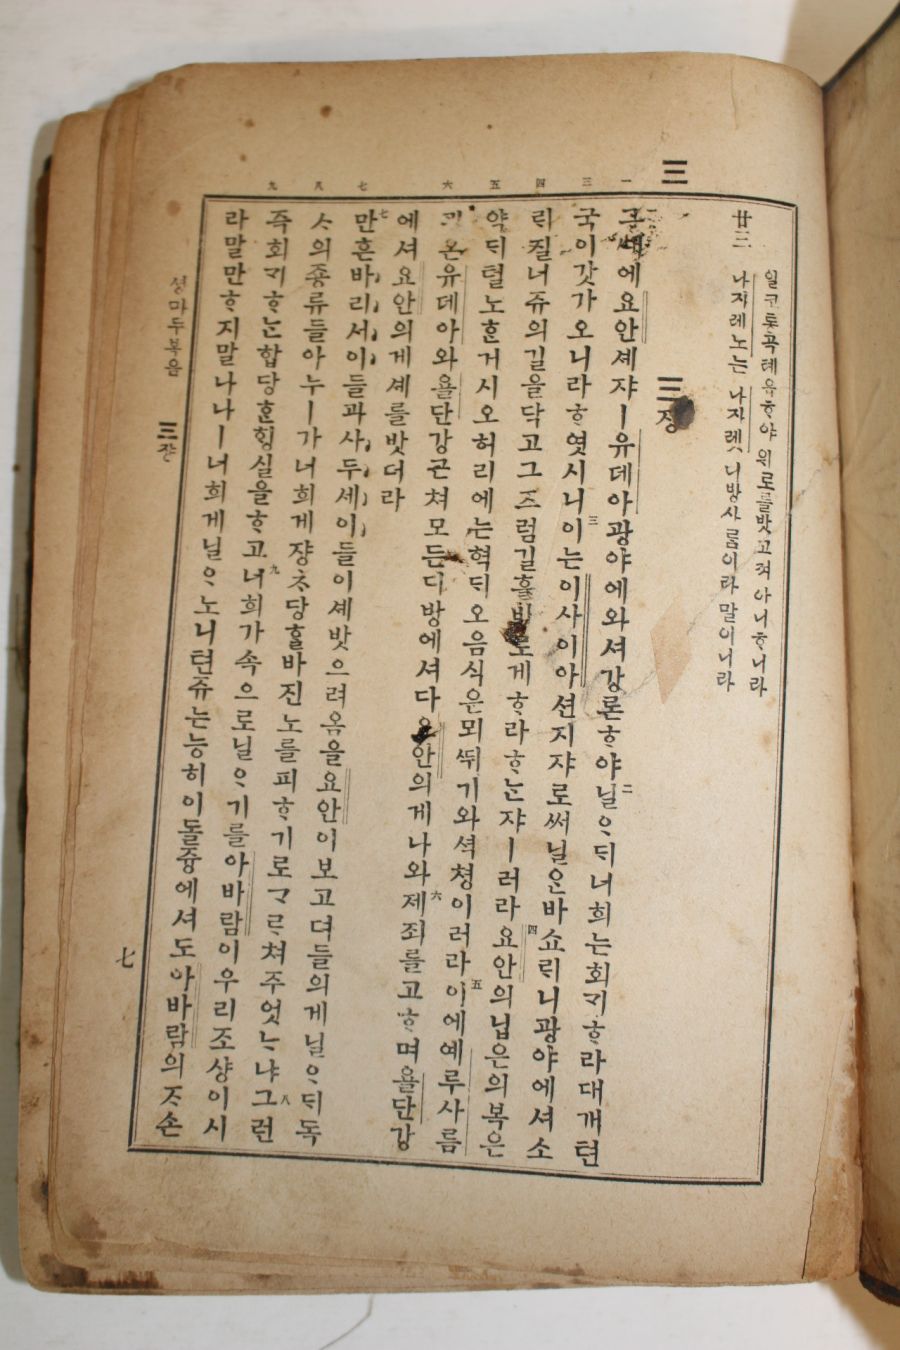 三
一 二 三 四 五 六 七 八 九
일코통곡ᄒᆞ야위로를밧고져아니ᄒᆞ니라
廿三 나자레노는 나자렛ㅅ디방사ᄅᆞᆷ이라말이니라
三쟝
에요안셰쟈ㅣ유데아광야에와셔강론ᄒᆞ야二닐ᄋᆞᄃᆡ너희는회ᄀᆡᄒᆞ라대개텬
국이갓가오니라ᄒᆞ엿시니三이는이사이아션지쟈로써닐운바쇼ᄅᆡ니광야에셔소
ᄅᆡ질너쥬의길을닥고그즈럼길흘바로게ᄒᆞ라ᄒᆞᄂᆞᆫ쟈ㅣ러라四요안의닙은의복은
약ᄃᆡ털노ᄒᆞᆫ거시오허리에는혁ᄃᆡ오음식은뫼ᄯᅱ기와셕쳥이러라五이에예루사름
과온유데아와욜단강근쳐모든디방에셔다요안의게나와六제죄를고ᄒᆞ며욜단강
에셔요안의게셰를밧더라
七만흔바리서이들과사두세이들이셰밧으려옴을요안이보고뎌들의게닐ᄋᆞᄃᆡ독
ᄉᆞ의죵류들아누ㅣ가너희게쟝ᄎᆞ당ᄒᆞᆯ바진노를피ᄒᆞ기로ᄀᆞᄅᆞ쳐주엇ᄂᆞ냐八그런
즉회ᄀᆡᄒᆞᄂᆞᆫ합당ᄒᆞᆫᄒᆡᆼ실을ᄒᆞ고九너희가속으로닐ᄋᆞ기를아바람이우리조샹이시
라말만ᄒᆞ지말나나ㅣ너희게닐ᄋᆞ노니텬쥬는능히이돌즁에셔도아바람의ᄌᆞ손
셩마두복음 三쟝 七